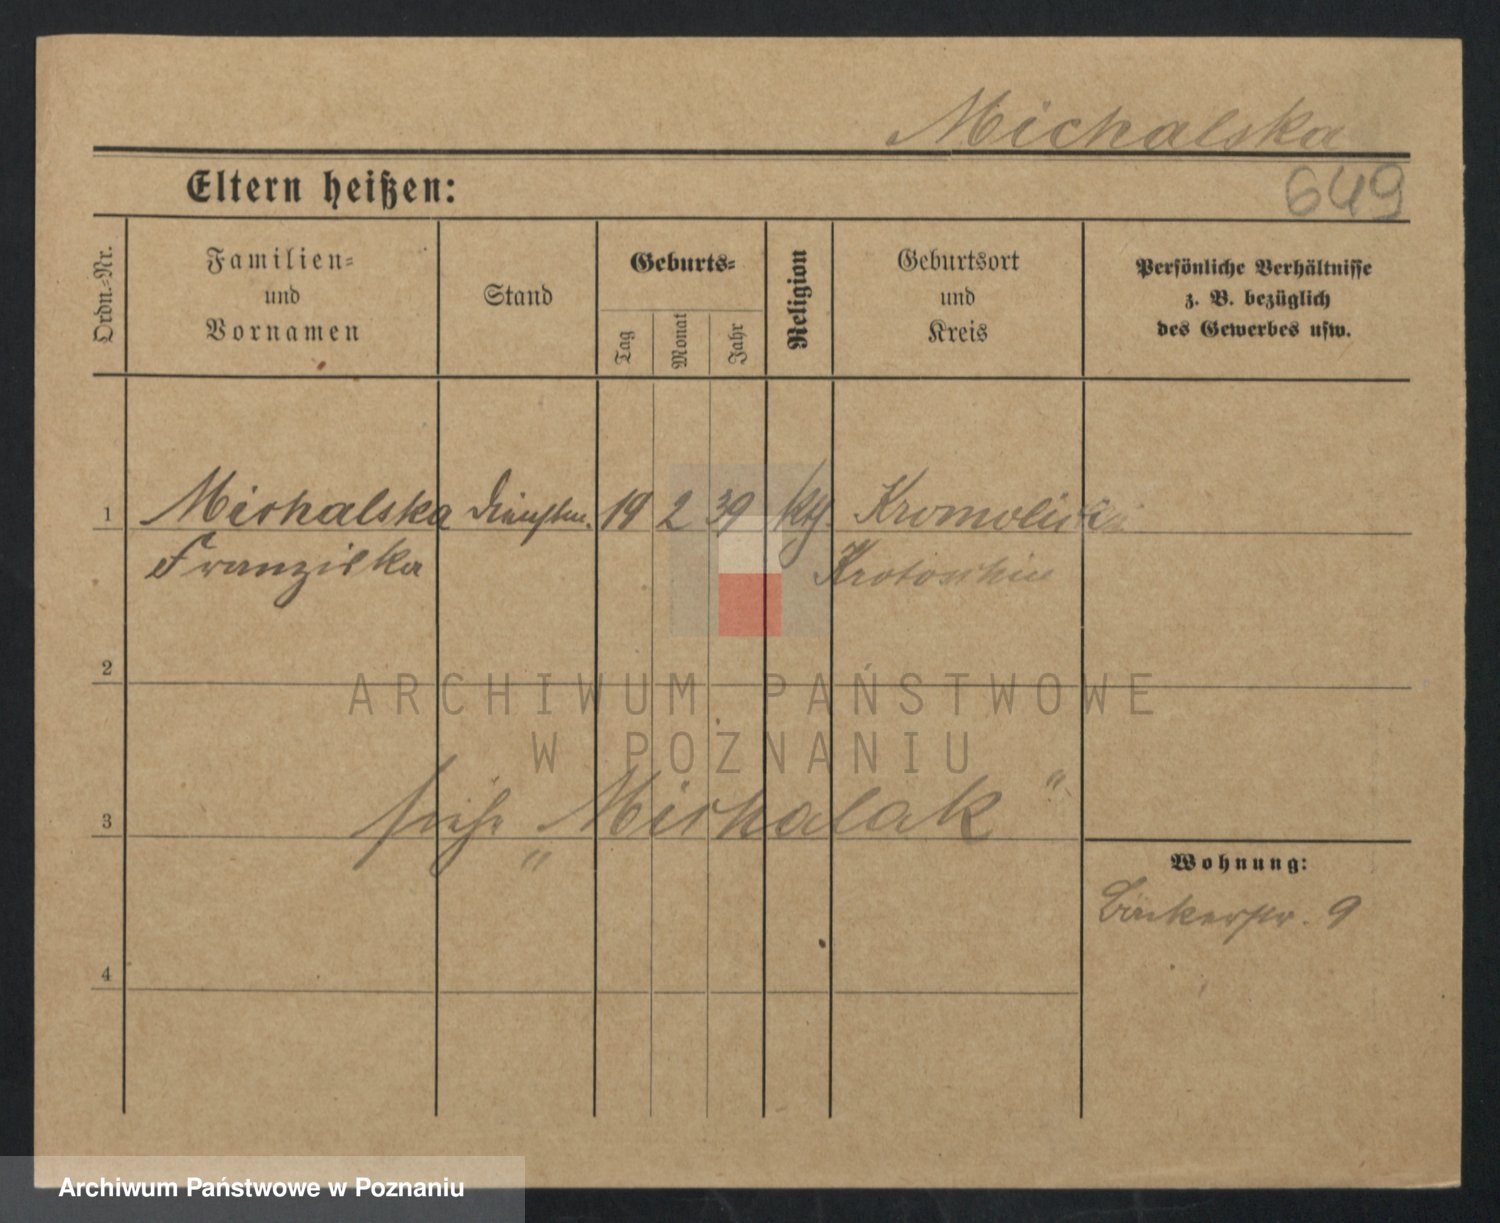 Michalska
Eltern heißen:
649
Ordn.-Nr.
Familien-
und
Vornamen
Stand
Geburts-
Tag
Monat
Jahr
Religion
Geburtsort
und
Kreis
Persönliche Verhältnisse
z. B. bezüglich
des Gewerbes usw.
1 Michalska 19 2 39 kth. Kromolice
Franziska Krotoschin
2
ARCHIWUM PAŃSTWOWE
W POZNANIU
3 siehe „Michalak“
Wohnung:
Bäckerstr. 9
4
Archiwum Państwowe w Poznaniu